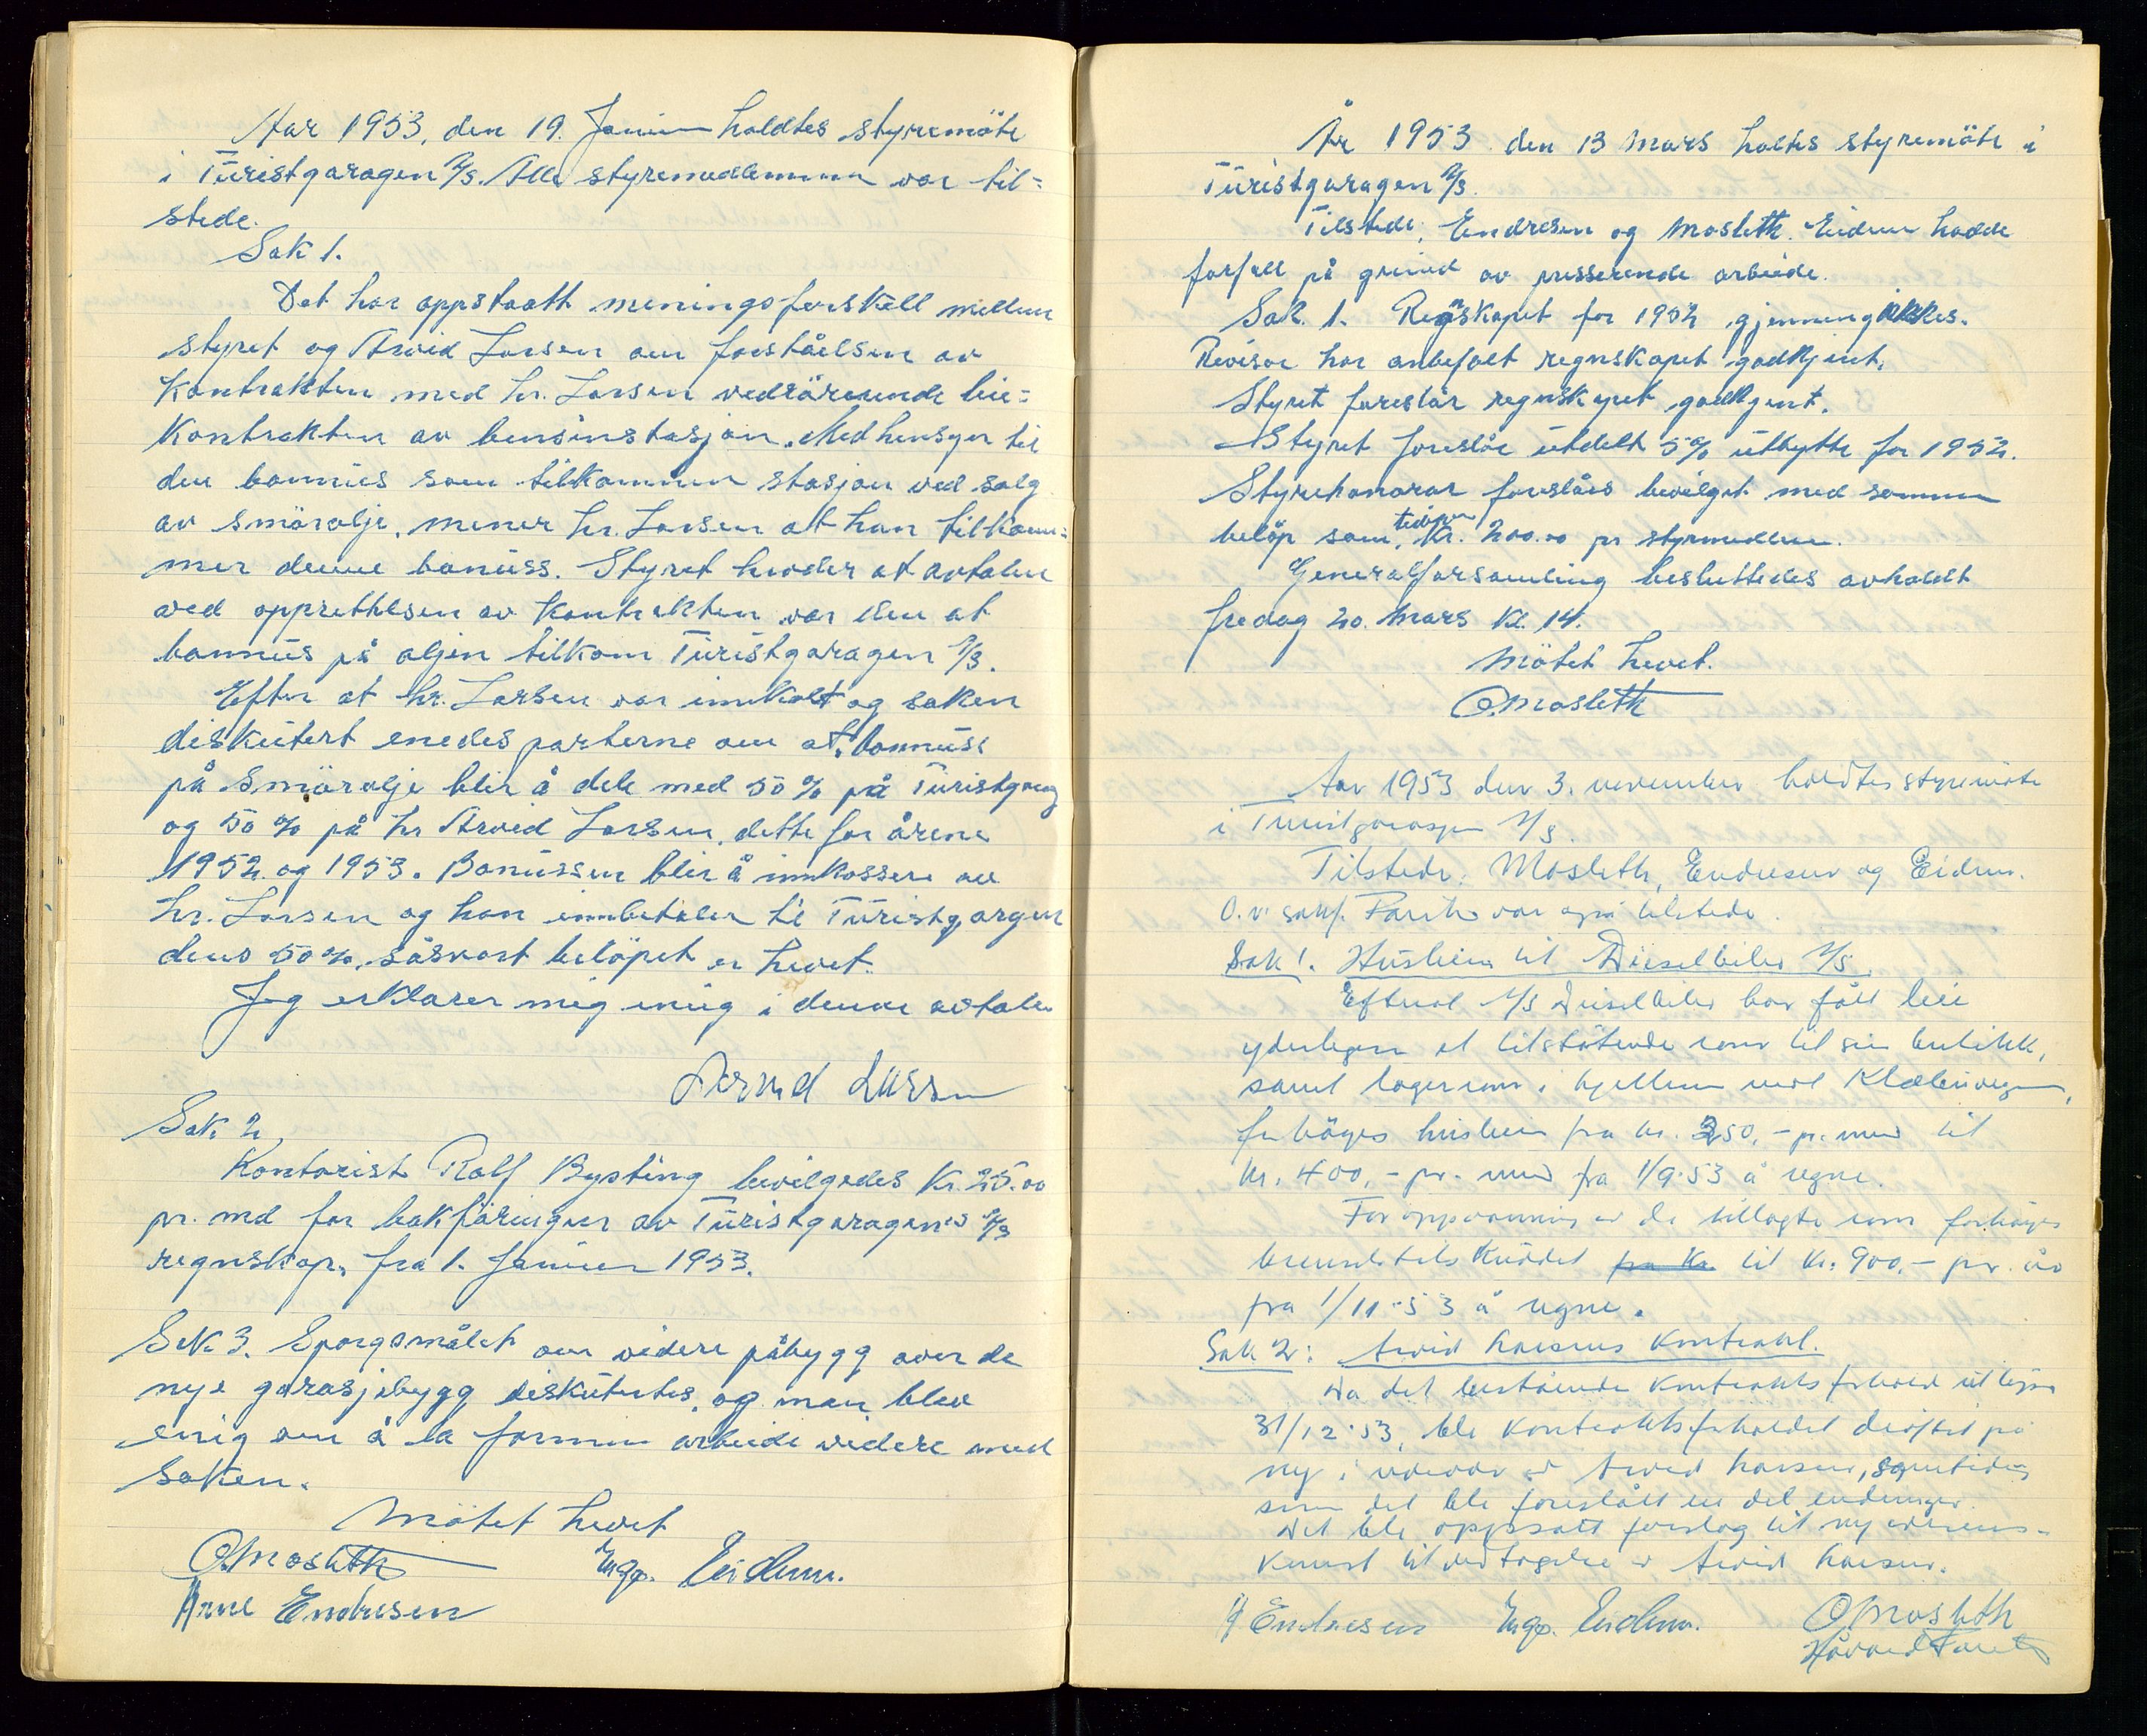 Aar 1953, den 19. Januar holdtes styremöte
i Turistgaragen A/S. Alle styremedlemmer var til=
stede.
Sak 1.
Det har oppstaatt meningsforskell mellem
styret og Arvid Larsen om forståelsen av
Kontrakten med hr. Larsen vedrörende leie=
Kontrakten av bensinstasjon. Med hensyn til
den bonnus som tilkommer stasjon ved salg
av smöreolje, mener hr. Larsen at han tilkom=
mer denne bonuss. Styret hevder at avtalen
ved opprettelsen av Kontrakten var den at
bonnus på oljen tilkom Turistgaragen A/S.
Efter at hr. Larsen var innkalt og saken
diskutert enedes parterne om at bonnuss
på Smörolje blir å dele med 50% på Turistgarag
og 50% på hr Arvid Larsen, dette for årene
1952 og 1953. Bonussen blir å innkassere av
hr. Larsen og han innbetaler til Turistgaragen
dens 50%, såsnart belöpet er hevet.
Jeg erklærer mig enig i denne avtalen
Arvid Larsen
Sak 2,
Kontorist Rolf Bysting bevilgedes Kr. 25.00
pr. md for bokföringen av Turistgaragen's A/S
regnskap, fra 1. Januar 1953.
Sak 3. Sporgsmålet om videre påbygg over de
nye garasjebygg diskutertes, og man blev
enig om å la formann arbeide videre med
saken.
Mötet hevet
O. Mosleth Inge. Eidem.
Arne Endresen
År 1953 den 13 mars holtes styremöte i
Turistgaragen A/S.
Tilstede, Endresen og Mosleth. Eidem hadde
forfall på grund av presserende arbeide.
Sak. 1. Regnskapet for 1952 gjennemgikkes.
Revisor har anbefalt regnskapet godkjent.
Styret foreslår regnskapet godkjent.
Styret foreslår utdelt 5% utbytte for 1952.
Styrehonorar foreslåes bevilget med samme
belöp som tidligere, Kr. 200.00 pr styremedlem.
Generalforsamling besluttedes avholdt
fredag 20. Mars Kl. 14.
Mötet hevet.
O. Mosleth
Aar 1953 den 3. november holdtes styremöte
i Turistgarasjen A/S.
Tilstede: Mosleth, Endresen og Eidem.
O.r. sakf. var også tilstede.
Sak 1. Husleien til Dieselbiler A/S.
Efterat A/S Dieselbiler har fått leie
yderligere et tilstötende rom til sin butikk,
samt lagerrom i kjelleren mot Klæbuvegen,
forhöges husleien fra kr. 350,- pr. mnd til
kr. 400,- pr. mnd fra 1/9-53 å regne.
For oppvarming av de tillagte rom forhöges
brenseltilskuddet fra Kr. til kr. 900,- pr. år
fra 1/11-53 å regne.
Sak 2: Arvid Larsens kontrakt.
Da det bestående kontraktsforhold utlöper
31/12-53, ble kontraktsforholdet dröftet på
ny i nærvær av Arvid Larsen, samtidig
som det ble foreslått en del endringer.
Det ble oppsatt forslag til ny overens-
komst til vedtagelse av Arvid Larsen.
A Endresen Inge. Eidem. O Mosleth
Håvard